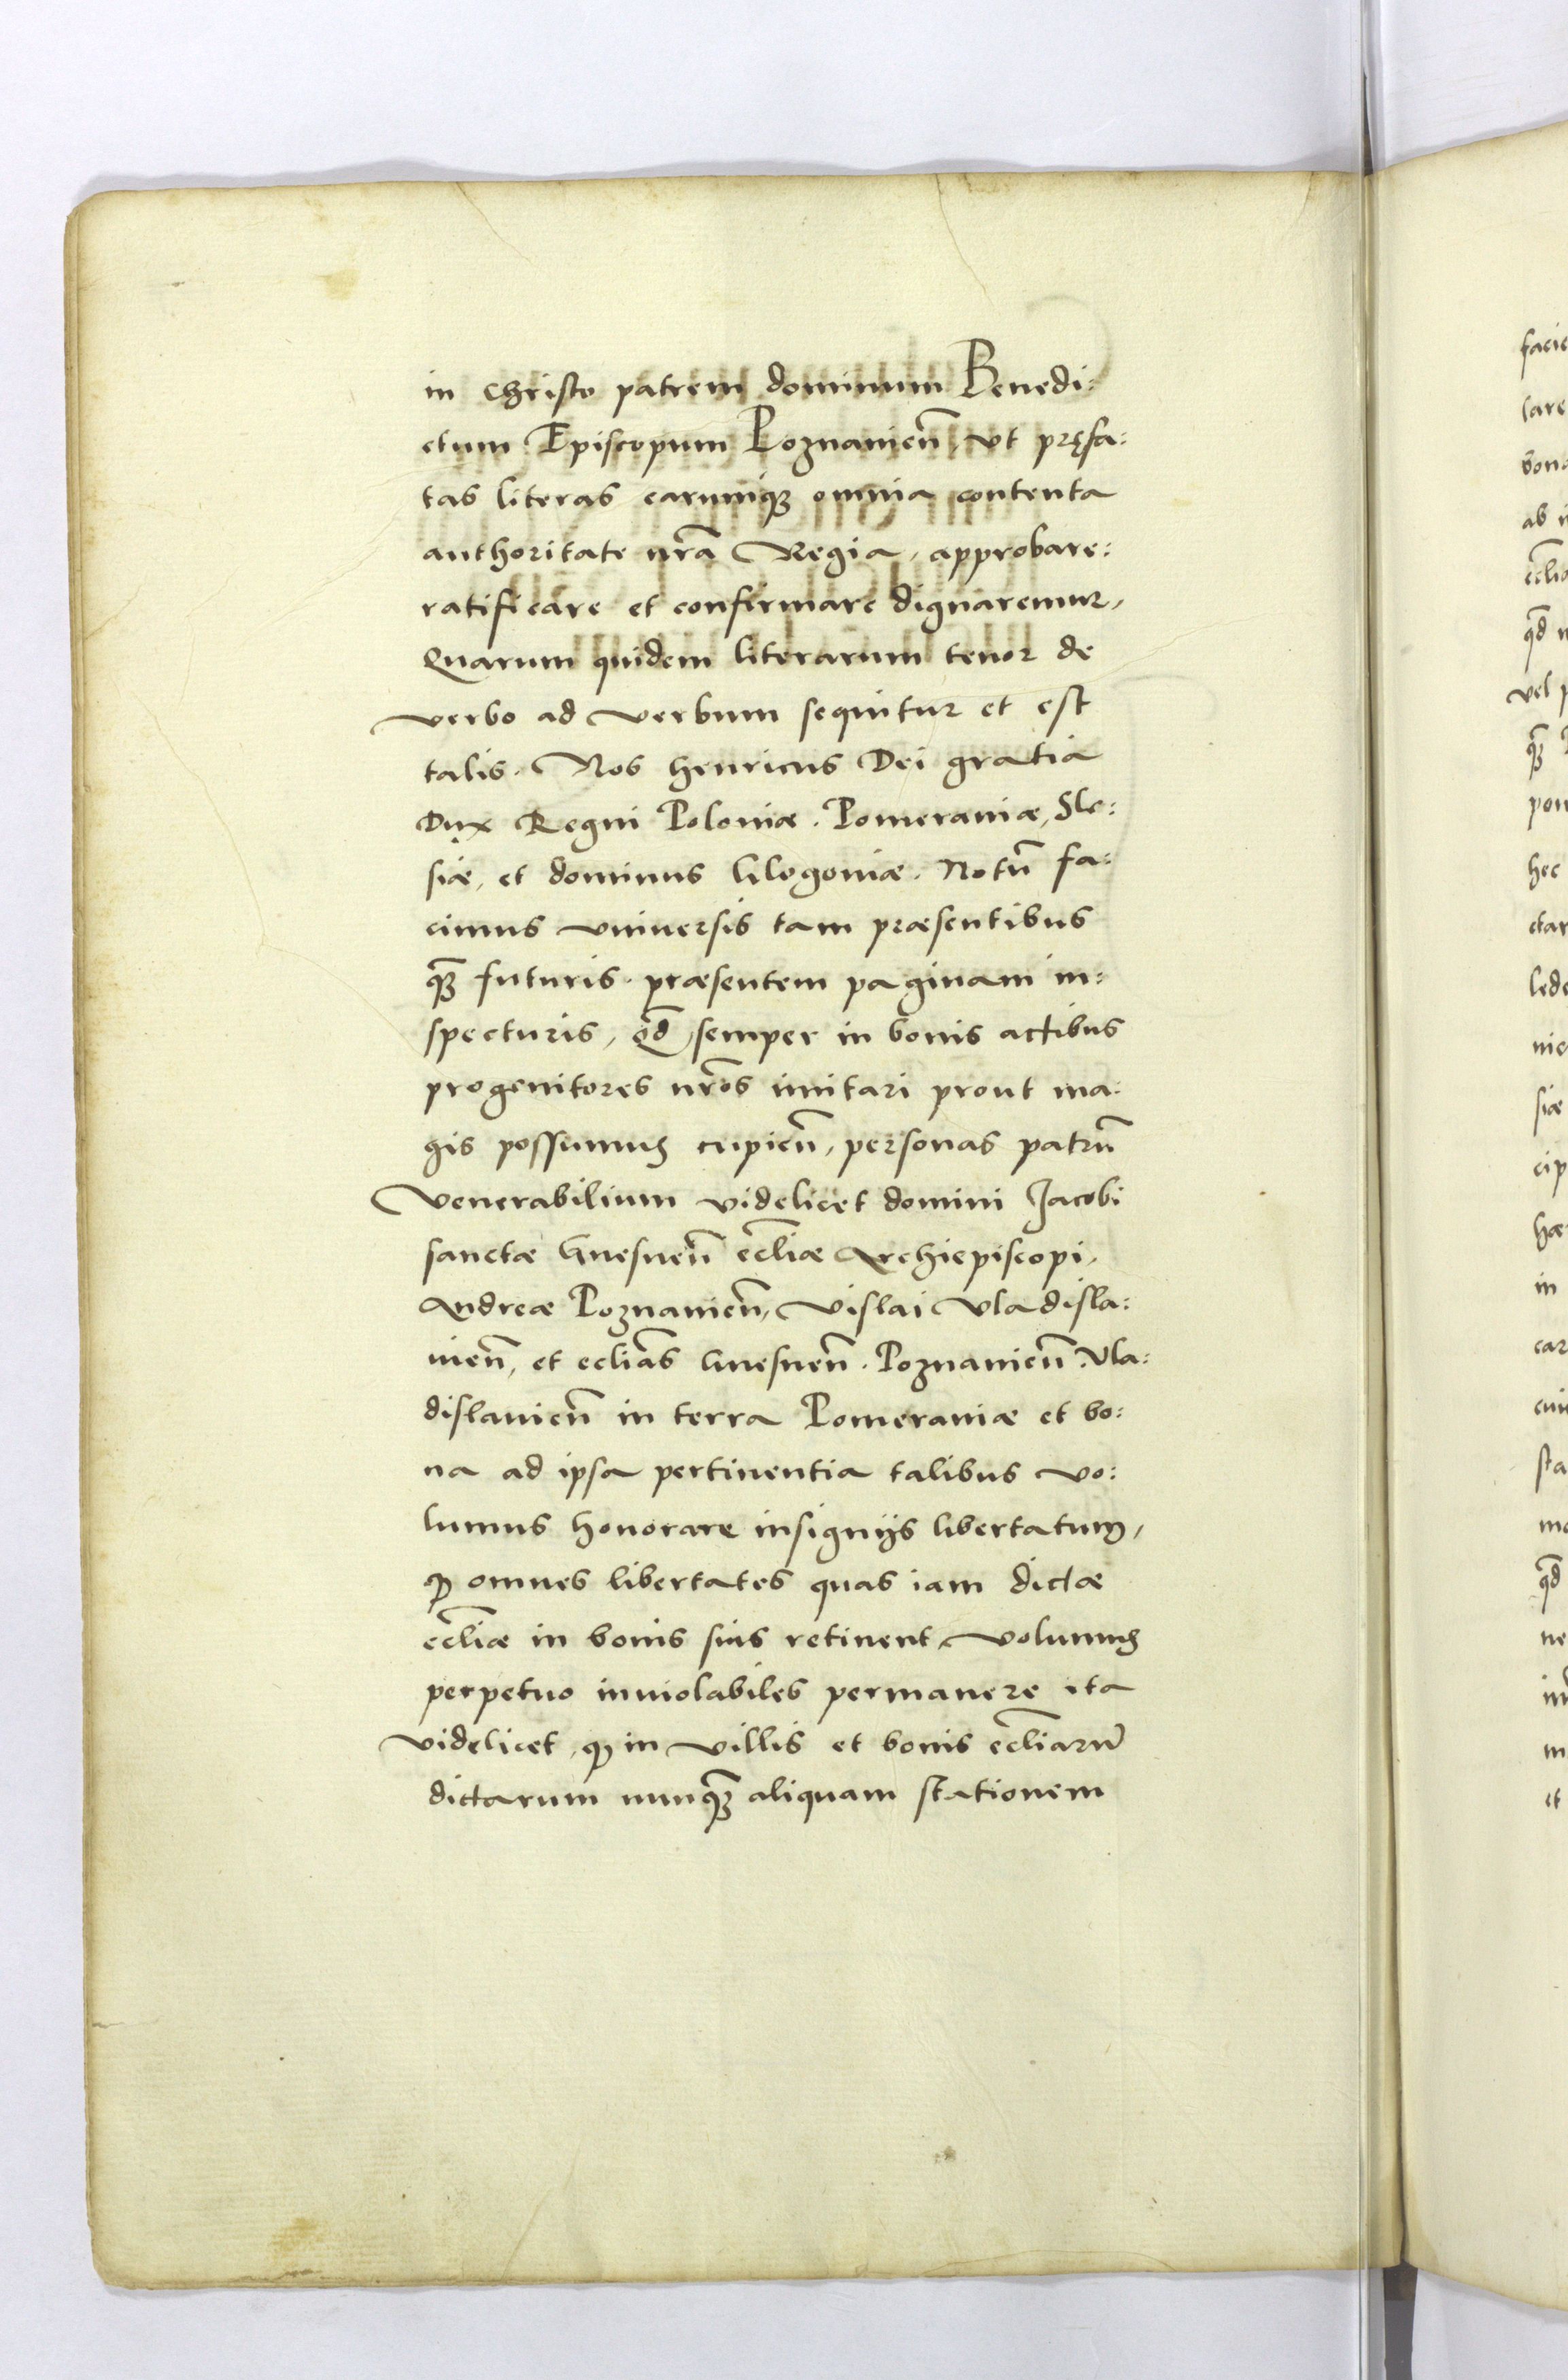 in Christo patrem dominum Benedi:
ctum Episcopum Poznanieñ, vt pręfa:
tas literas earumq₃ omnia contenta
authoritate nr̃a Regia, approbare:
ratificare et confirmare dignaremur,
Quarum quidem literarum tenor de
verbo ad verbum sequitur et est
talis. Nos Henricus Dei gratia
Dux Regni Poloniæ. Pomeraniæ, Sle:
siæ, et dominus Glogoniæ. Notũ fa:
cimus vniuersis tam præsentibus
q̃₃ futuris. præsentem paginam in:
specturis, qd̃ semper in bonis actibus
progenitores nr̃os imitari prout ma:
gis possumus cupieñ, personas patrũ
venerabilium videlicet domini Jacobi
sanctæ Gnesneñ ecc̃liæ Archiepiscopi,
Andreæ Poznanieñ, Vislai Vladisla:
uieñ, et ecl̃ias Gnesneñ. Poznanieñ. Vla:
dislauieñ in terra Pomeraniæ et bo:
na ad ipsa pertinentia talibus vo:
lumus honorare insignijs libertatum,
ꝙ omnes libertates quas iam dictæ
ecc̃liæ in bonis suis retinent, volumus
perpetuo inuiolabiles permanere ita
videlicet, ꝙ in villis et bonis ecc̃liarũ
dictarum nunq̃₃ aliquam stationem